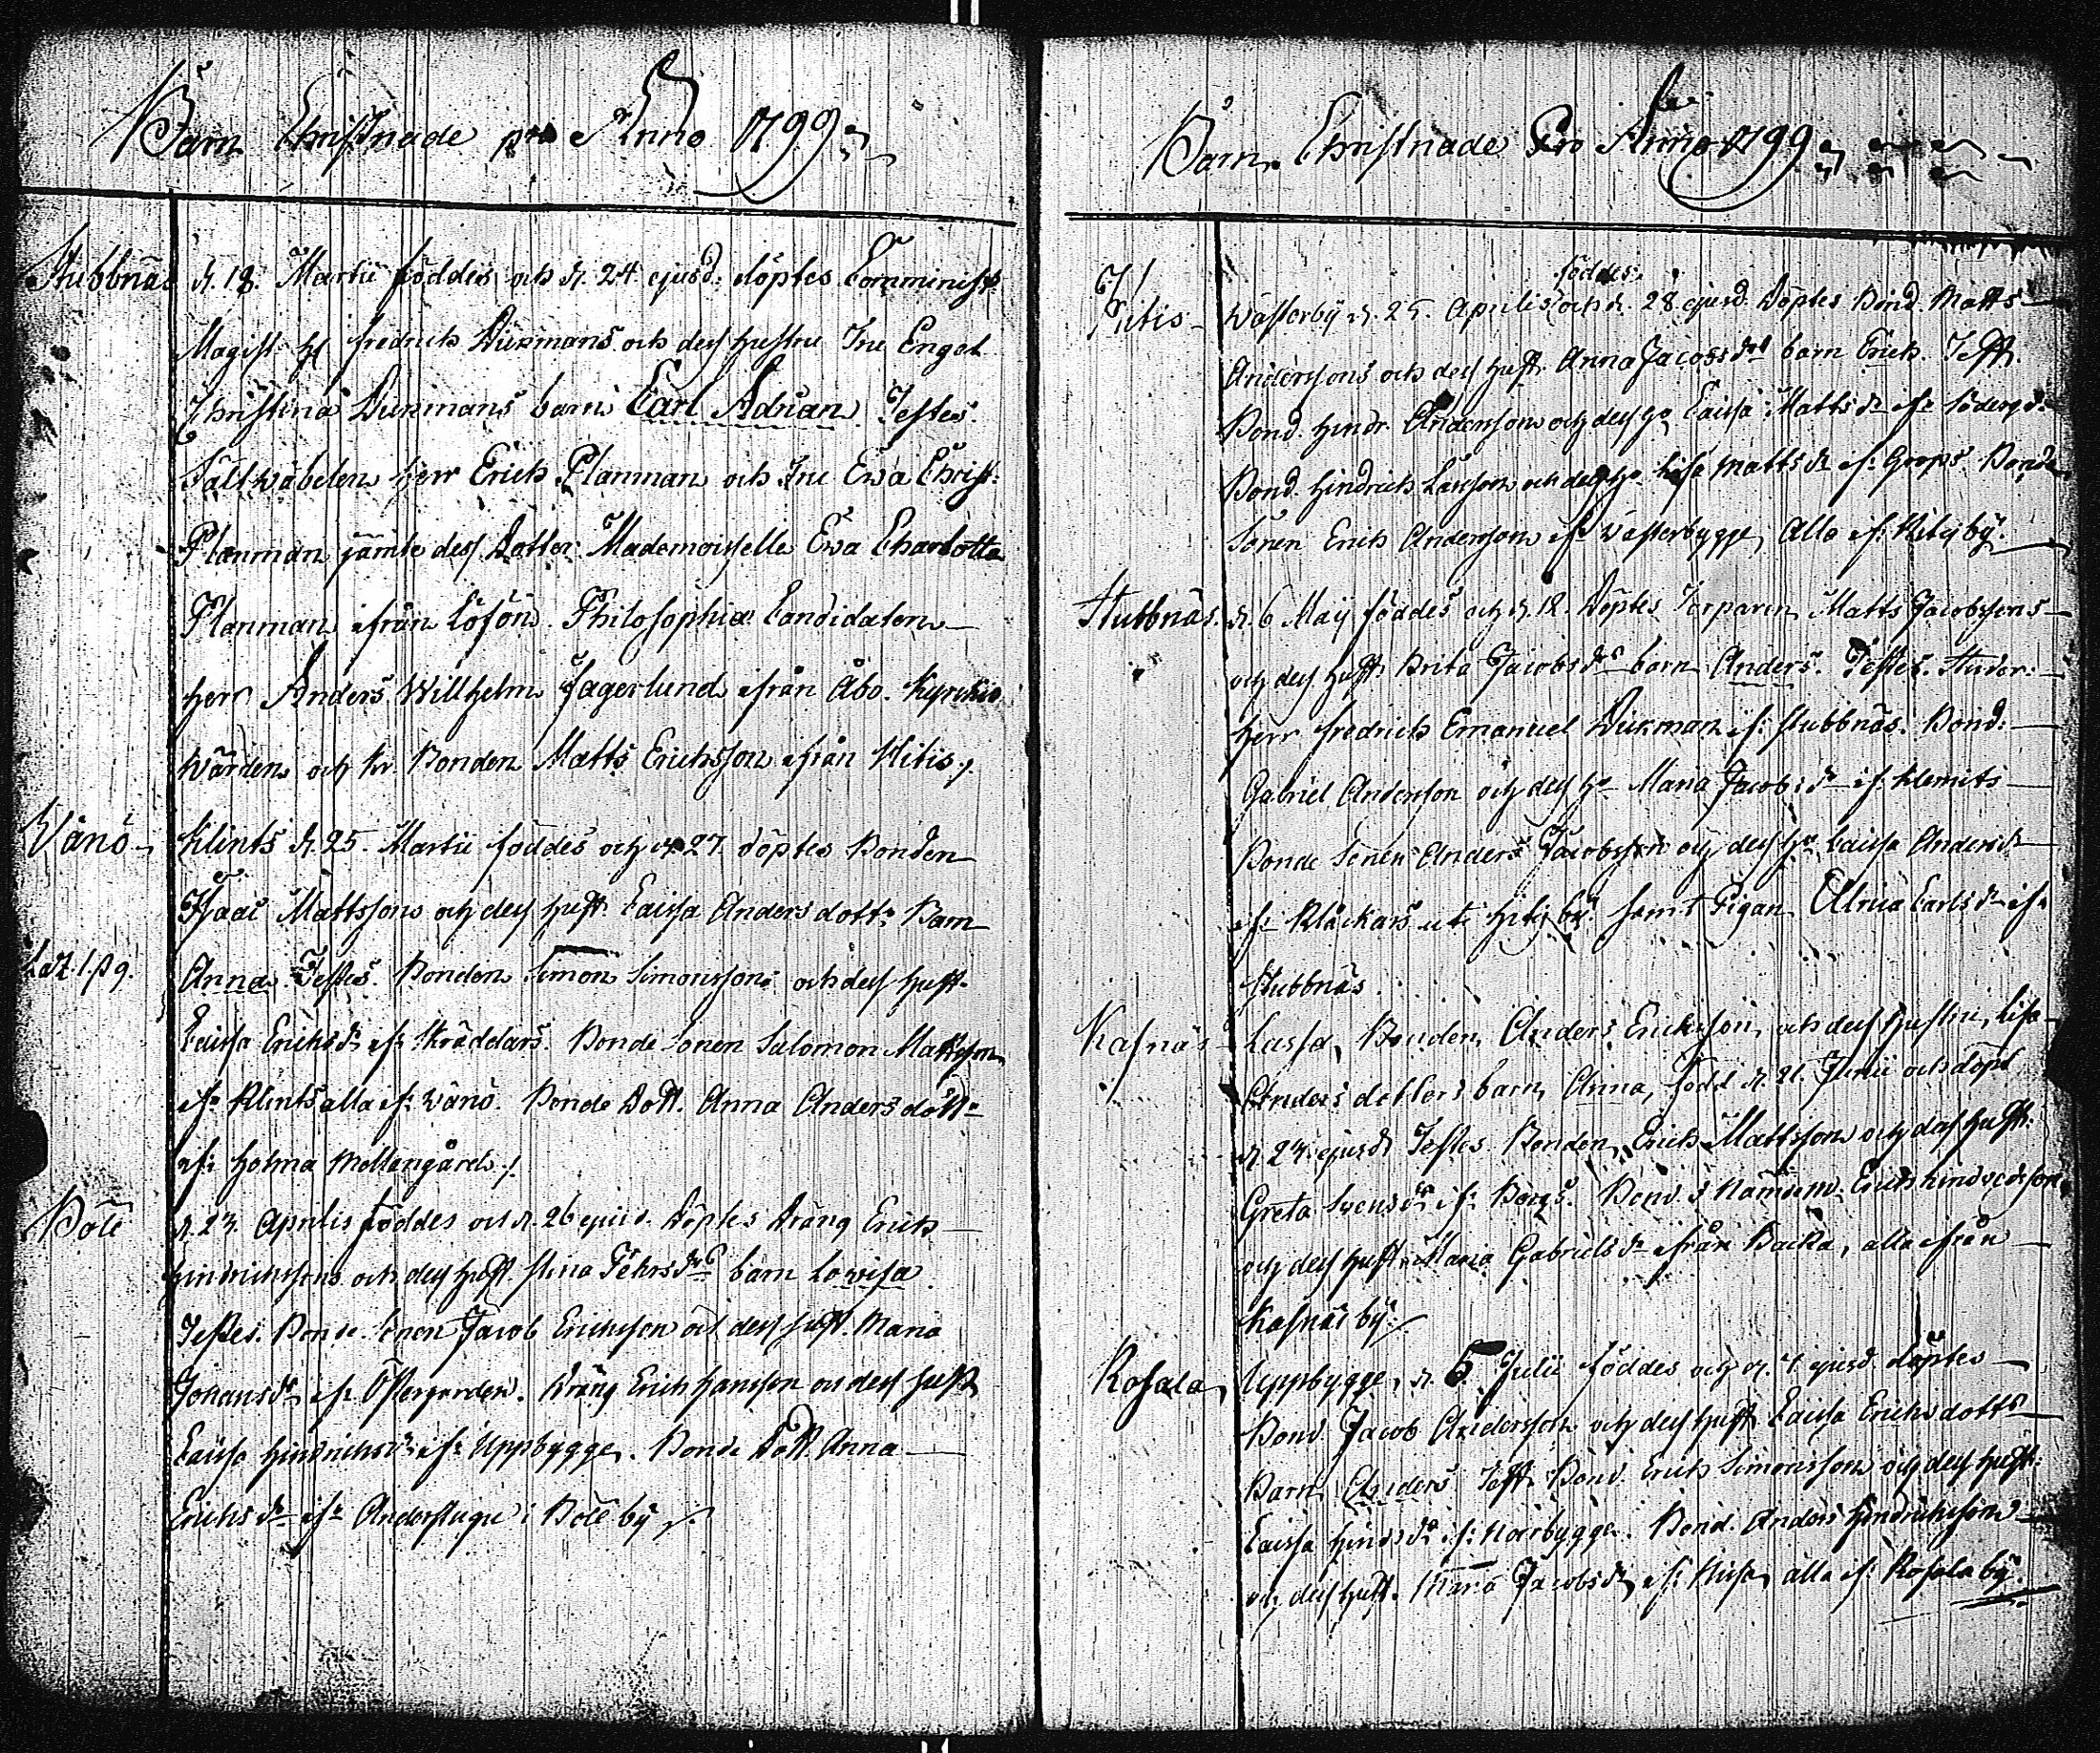 Barn Christnade pro Anno 1799
Stubbnäs d. 18. Martii föddes och d. 24 ejusd: döptes Comminist:
Magist. H Fredrich Dikmans och dess hustru Fru Engel
Christina Dikmans barn Carl Adrian Testes.
Fältwäbelen herr Erich Planman och Fru Ewa Christ:
Planman jämte dess Dotter Mademoiselle Ewa Charlotta
Planman ifrån Löfön. Philosophiæ Candidaten
Herr Anders Willhelm Jagerlund ifrån Åbo. Kyrckio
wärden och Bonden Matts Erichsson ifrån Hitis
Vänö Klints d. 25. Martii föddes och d. 27 döptes Bonden
Isaac Mattssons och dess hust. Caisa Anders dott: Barn
Anna Testes. Bonden Simon Simonsson och dess hust.
Caisa Erichs dr if: Skräddars. Bonde Sonen Salomon Mattsson
if: Klints alla if: Vänö. Bonde Dott. Anna Anders dott:
if: Holma Mellangård
Böle d. 23. Aprilis föddes och d. 26 ejusd. Döptes Dräng Erich
Hindrichssons och dess hust. Stina barn Lovisa
Testes. Bonde Sonen Jacob Erichsson och dess hust. Maria
Johans dr if: Östergarden. Dräng Erich Hansson och dess hust
Caisa Hindrichs dr if: Uppbygge. Bonde Dott. Anna
Erichs dr if: Anderstugu i Böle by
Barn Christnade Pro Anno 1799
föddes
Hitis Wästerby d. 25. Aprilis och d. 28 ejusd. Döptes Bond. Matts
Anderssons och dess hust. Anna Jacobs drs barn Erich. Test.
Bond. Hindr. Andersson och dess Caisa Matts dr if:
Bond. Hindrich Larsson och dess Lisa Matts dr if: Bonde
Sonen Erich Andersson if: Wästerbygge, Alla if: Hitis by.
Stubbnäs. d. 6 Maij föddes och d. 12. Döptes Torparen Matts Jacobssons
och dess hust. Brita Jacobs drs barn Anders. Testes. Studer:
Herr Fredrich Emanuel Dikman if: Stubbnäs. Bond:
Gabriel Andersson och dess Maria Jacobs dr if: Klemets
Bonde Sonen Anders Jacobsson och dess Caisa Anders dr
if: Klåckars uti Hitis by samt Pigan Ulrica Carls dr if:
Stubbnäs
Kasnäs Lassas, Bonden Anders Erichsson och dess Hustru, Lisa
Anders dotters barn Anna, född d. 21. Junii och döpt
d 24 ejusd. Testes Bonden Erich Mattsson och dess hust:
Greta Svens dr if: Böns. Bond. Nämdem. Erich Hindricsson
och dess hust. Maria Gabriels dr ifrån Backa, alla ifrån
Kasnäs by
Rosala, Uppbygge, d. 5 Julii föddes och d. 7 ejusd. döptes
Bond. Jacob Andersson och dess hust. Caisa Erichs dott:
Barn Anders Test. Bond. Erich Simonsson och dess hust:
Caisa Hind: dr if: Norrbygge. Bond. Anders Hindrichsson
och dess hust. Maria Jacobs dr if: alla if: Rosala by.